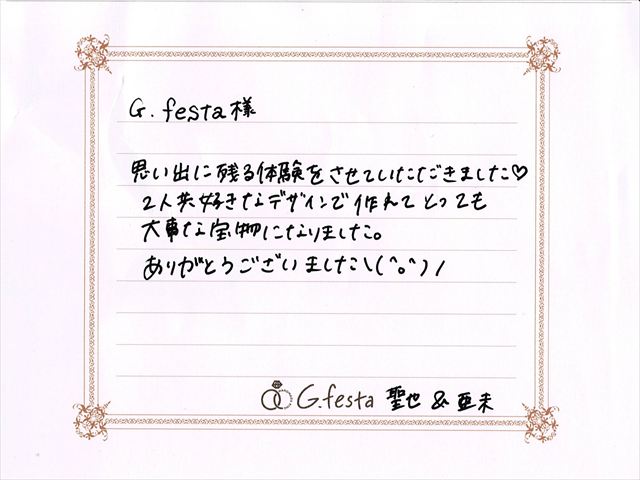 G.festa様
思い出に残る体験をさせていただきました♡
2人共好きなデザインで作れてとっても
大事な宝物になりました。
ありがとうございました\(^o^)/
G.festa 聖也 & 亜未